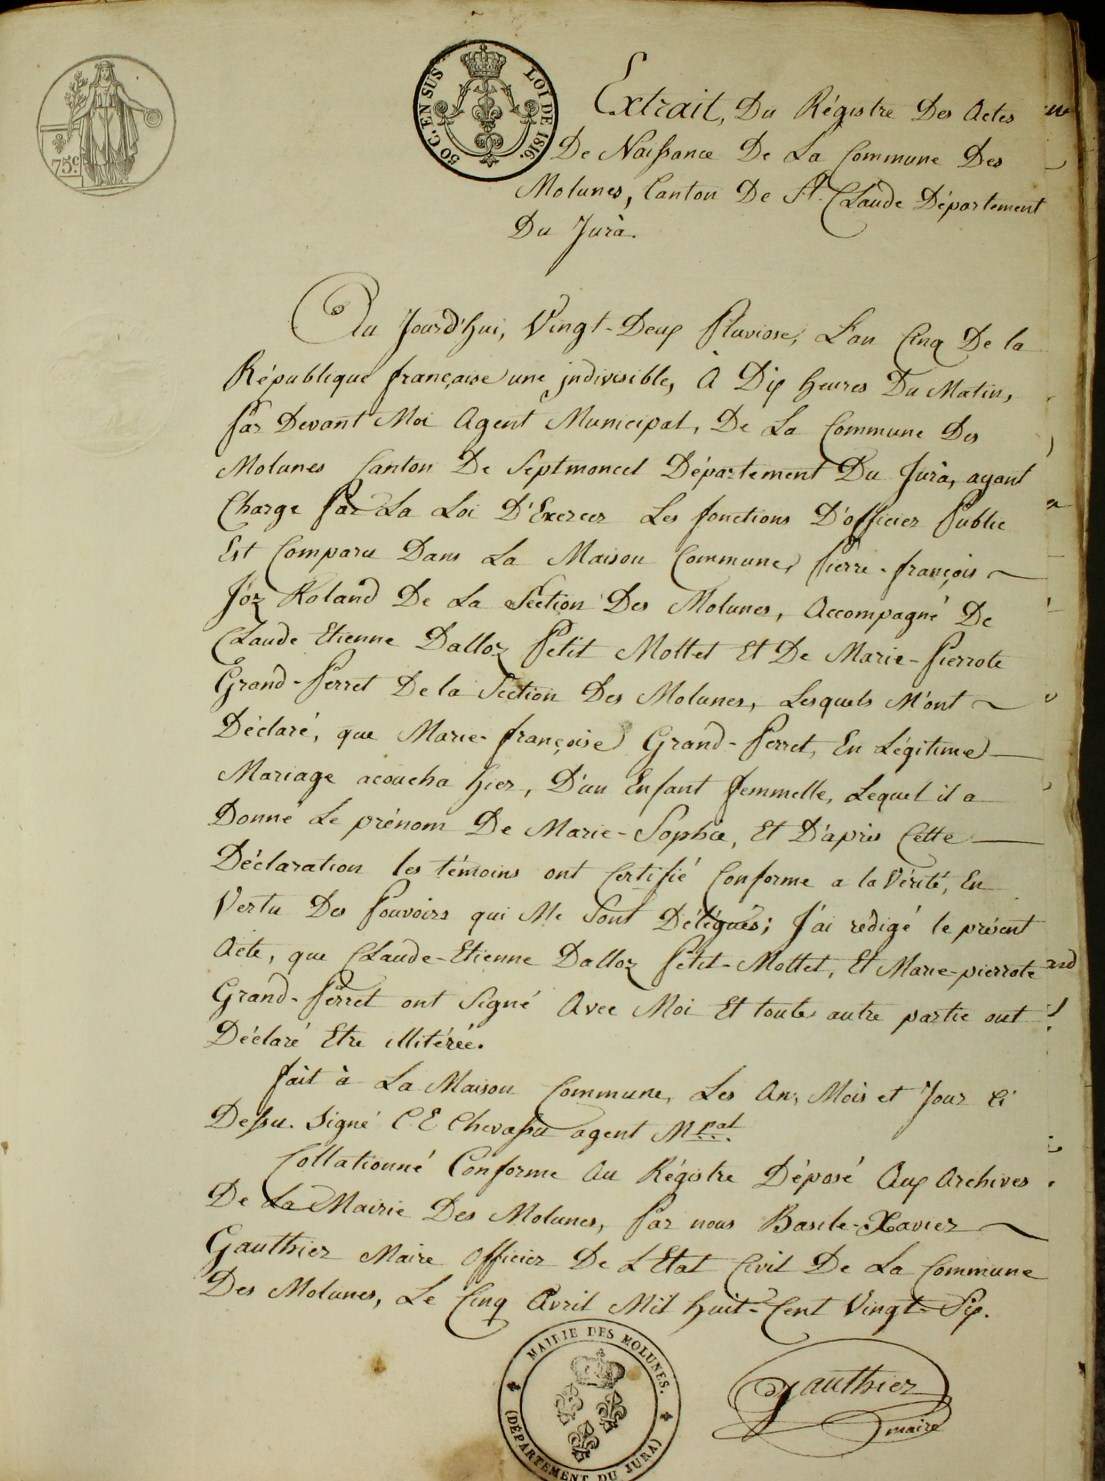 75c.
50 C. EN SUS LOI DE 1816.
Extrait, Du Régistre Des Actes
De Naissance De La Commune Des
Molunes, Canton De St. Claude Département
Du Jura.
Au Jourd'hui, Vingt-Deux Pluviose, L'an Cinq De la
République française une indivisible, À Dix heures Du Matin,
Par Devant Moi Agent Municipal, De La Commune Des
Molunes Canton De Septmoncel Département Du Jura, ayant
Charge Par La Loi D'Exercer Les fonctions D'officier Public
Est Comparu Dans La Maison Commune, Pierre-françois
Joz Roland De La Section Des Molunes, Accompagné De
Claude Etienne Dalloz Petit Mottet Et De Marie-Pierrote
Grand-Perret De la Section Des Molunes, Lesquels M'ont
Déclaré, que Marie-françoise Grand-Perret, En Légitime
Mariage acoucha hier, D'un Enfant femmelle, Lequel il a
Donné Le prénom De Marie-Sophie, Et D'après Cette
Déclaration les témoins ont Certifié Conforme a la Vérité, En
Vertu Des Pouvoirs qui Me Sont Délégués; J'ai rédigé le présent
Acte, que Claude-Etienne Dalloz Petit-Mottet, Et Marie-pierrote
Grand-Perret ont Signé Avec Moi Et toute autre partie ont
Déclaré Etre illitérée.
fait à La Maison Commune, Les An, Mois et Jour Ci
Dessu. Signé C. E Chevassu agent Mpal.
Collationné Conforme Au Régistre Déposé Aux Archives
De La Mairie Des Molunes, Par nous Basile-Xavier
Gauthier Maire Officier De L'Etat Civil De La Commune
Des Molunes, Le Cinq Avril Mil huit-Cent Vingt-Six.
MAIRIE DES MOLUNES.
(DÉPARTEMENT DU JURA)
Gauthier
maire